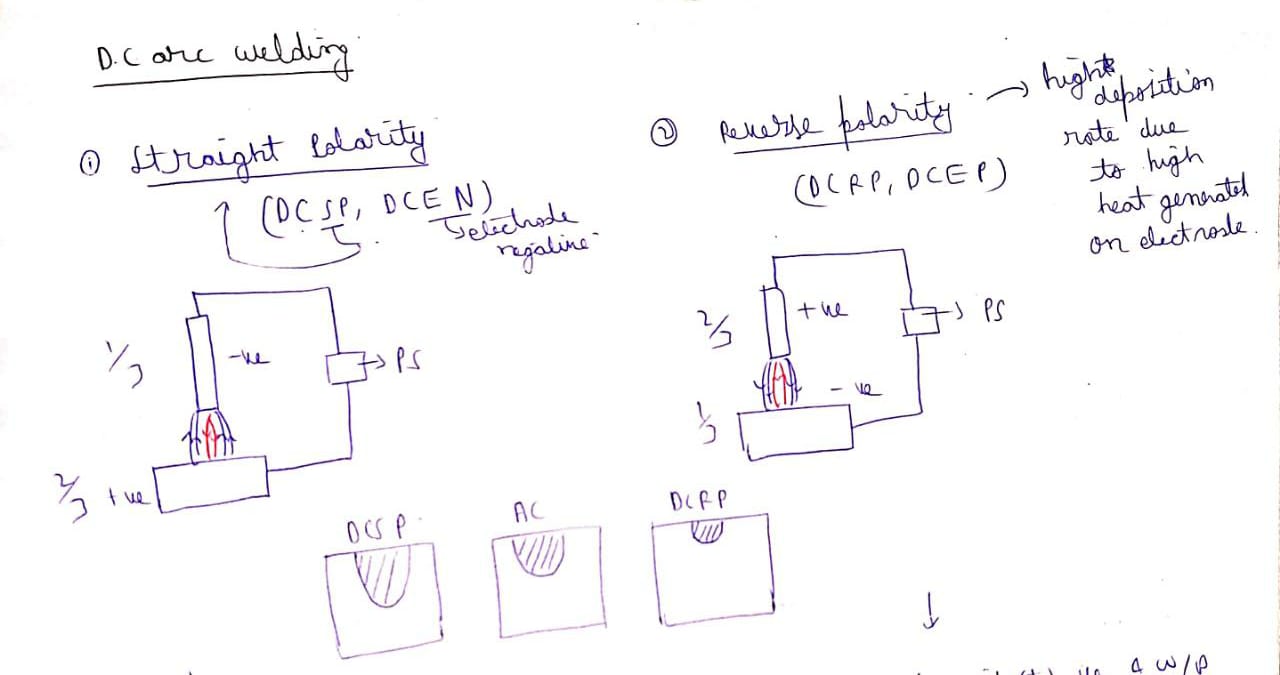 D.C arc welding
① Straight Polarity
(DCSP, DCEN)
electrode
negative
1/3
-ve
PS
2/3 +ve
② Reverse polarity → high
deposition
rate due
to high
heat generated
on electrode.
(DCRP, DCEP)
2/3
+ve
PS
- ve
1/3
DCSP
AC
DCRP
W/P